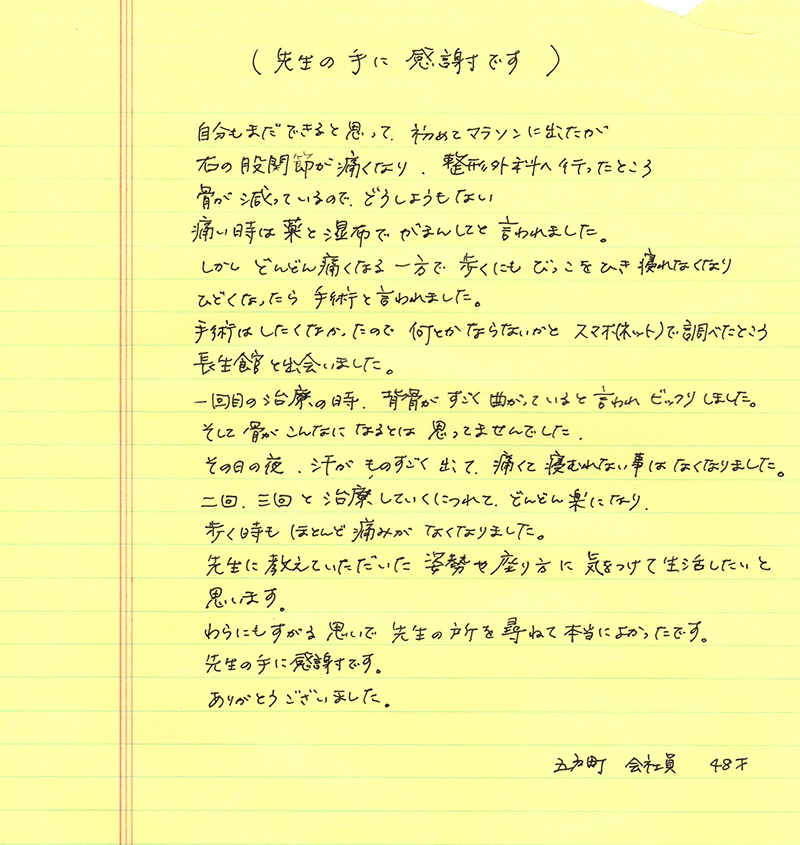 (先生の手に 感謝です)
自分もまだできると思って、初めてマラソンに出たが
右の股関節が痛くなり、整形外科へ行ったところ
骨が減っているので、どうしようもない
痛い時は薬と湿布でがまんしてと言われました。
しかしどんどん痛くなる一方で歩くにもびっこをひき寝れなくなり
ひどくなったら手術と言われました。
手術はしたくなかったので何とかならないかとスマホ(ネット)で調べたところ
長生館と出会いました。
一回目の治療の時、背骨がすごく曲がっていると言われビックリしました。
そして骨がこんなになるとは思ってませんでした、
その日の夜、汗がものすごく出て、痛くて寝むれない事はなくなりました。
二回、三回と治療していくにつれて、どんどん楽になり、
歩く時もほとんど痛みがなくなりました。
先生に教えていただいた姿勢や座り方に気をつけて生活したいと
思います。
わらにもすがる思いで先生の所を尋ねて本当によかったです。
先生の手に感謝です。
ありがとうございました。
五戸町 会社員 48才